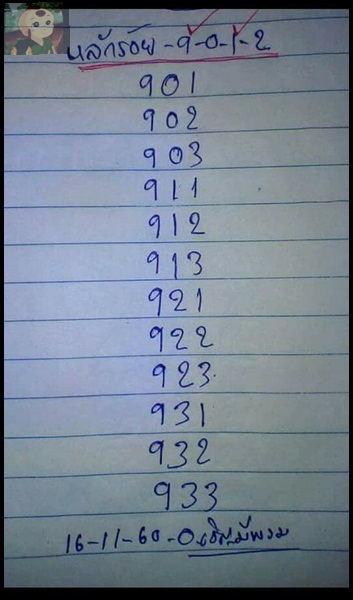 หลักร้อย-9-0-1-2
901
902
903
911
912
913
921
922
923
931
932
933
16-11-60-อ.